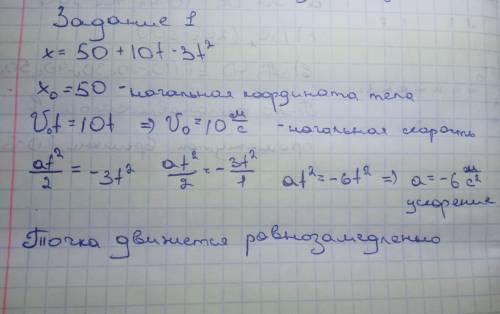 Задание 1
x = 50 + 10t - 3t²
x₀ = 50 - начальная координата тела
V₀t = 10t ⇒ V₀ = 10 м/с - начальная скорость
at²/2 = -3t² at²/2 = -3t²/1 at² = -6t² ⇒ a = -6 м/с²
ускорение
Точка движется равнозамедленно